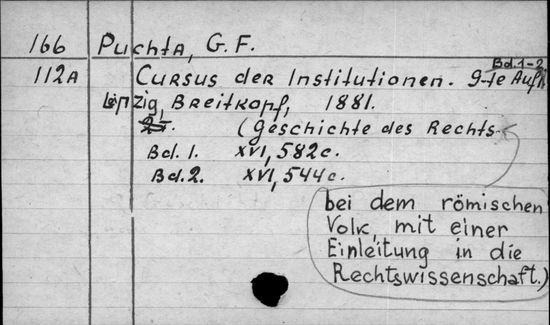 166 Puchta, G. F.
Bd. 1-2
112A Cursus der Institutionen. 9-te Aufl.
Leipzig, Breitkopf, 1881.
(Geschichte des Rechts
Bd. 1. XVI, 582c.
Bd. 2. XVI, 544c.
bei dem römischen
Volk, mit einer
Einleitung in die
Rechtswissenschaft.)